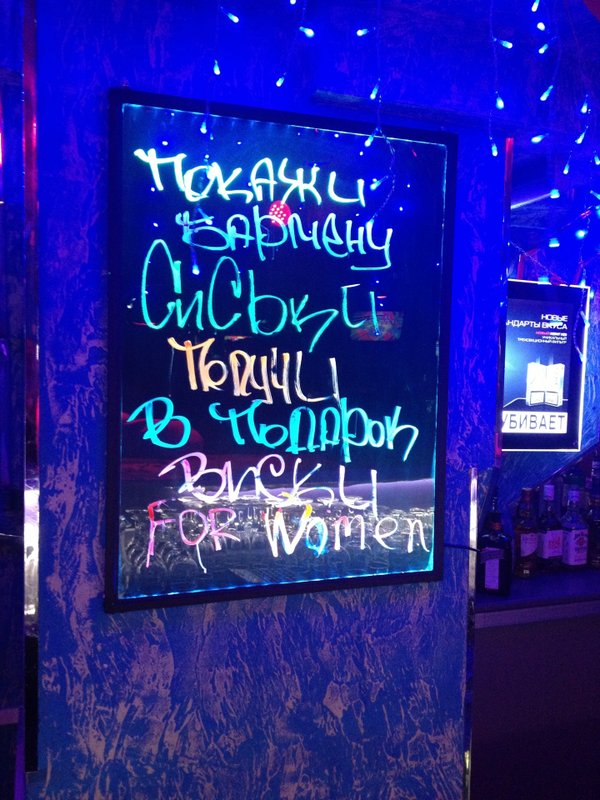 Покажи
Бармену
СиСьки
Получи
в подарок
виски
FOR women
НОВЫЕ
НДАРТЫ ВКУСА
УНИКАЛЬНЫЙ
УБИВАЕТ